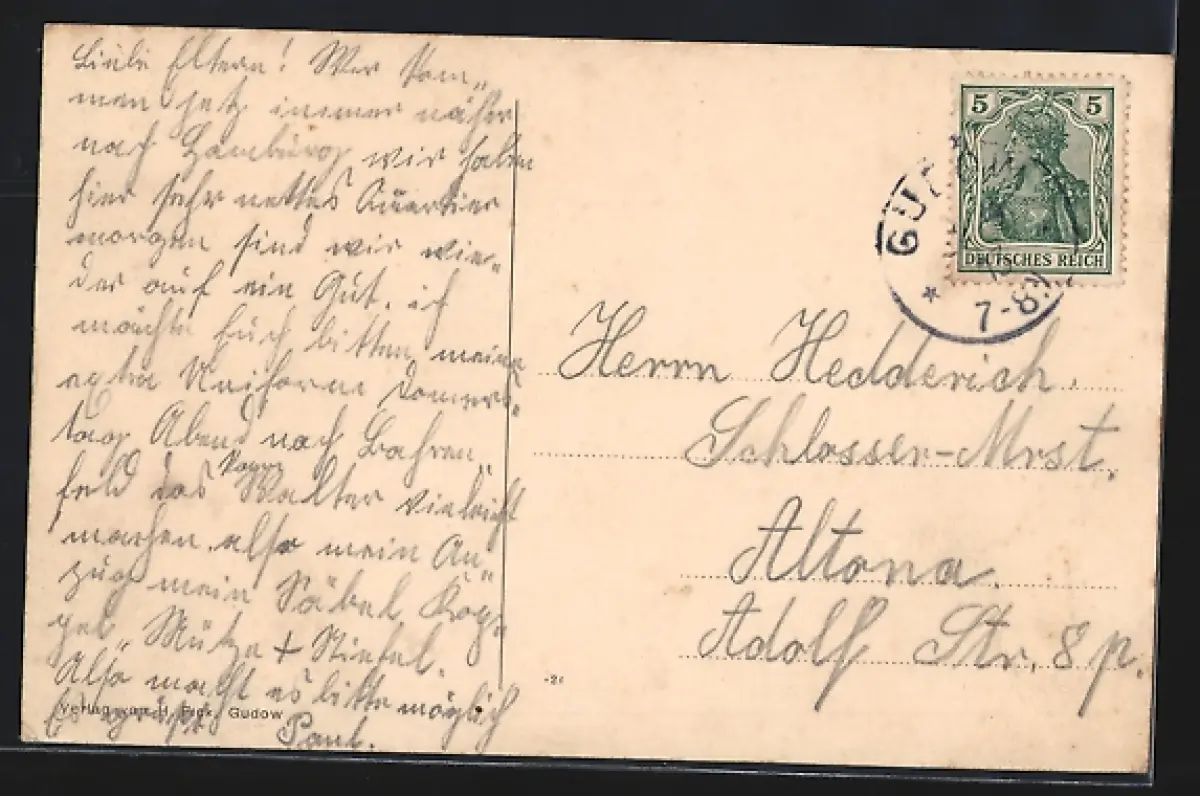 Liebe Eltern! Wir kom-
men jetz immer näher
nach Hamburg wir haben
hier sehr nettes Quartier
morgen sind wir wie-
der auf ein Gut. ich
möchte Euch bitten meine
extra Uniform Donners-
tag Abend nach Bahren-
feld das Walter vieleicht
machen. also mein An-
zug mein Säbel, Kop-
pel, Mütze + Stiefel.
Also macht es bitte möglich
Es grüßt Paul.
Verlag von H. Frick, Gudow
-21
5 5
DEUTSCHES REICH
GUD
7-8N
Herrn Hedderich.
Schlosser-Mrst.
Altona.
Adolf Str. 8 p.